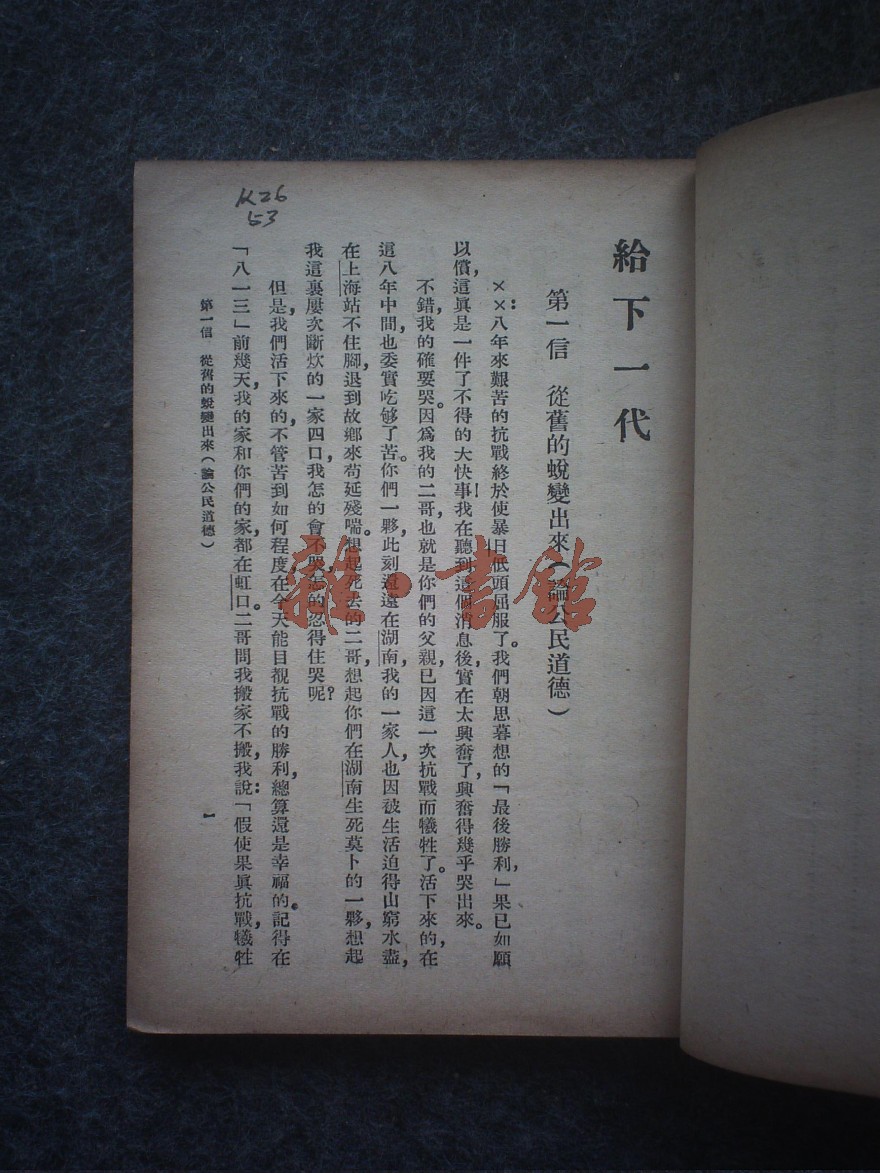 K26
53
給下一代
第一信　從舊的蛻變出來(論公民道德)
××：八年來艱苦的抗戰終於使暴日低頭屈服了。我們朝思暮想的「最後勝利，」果已如願
以償，這眞是一件了不得的大快事！我在聽到這個消息後，實在太興奮了，興奮得幾乎哭出來。
不錯，我的確要哭。因爲我的二哥，也就是你們的父親，已因這一次抗戰而犧牲了。活下來的，在
這八年中間，也委實吃够了苦。你們一夥，此刻還遠在湖南，我的一家人也因被生活迫得山窮水盡，
在上海站不住脚，退到故鄉來苟延殘喘。想起死去的二哥，想起你們在湖南生死莫卜的一夥，想起
我這裏屢次斷炊的一家四口，我怎的會不哭，怎的忍得住哭呢？
但是，我們活下來的，不管苦到如何程度，在今天能目覩抗戰的勝利，總算還是幸福的。記得在
「八一三」前幾天，我的家和你們的家，都在虹口。二哥問我搬家不搬，我說：「假使果眞抗戰，犧牲
第一信　從舊的蛻變出來(論公民道德)
1
雜·書館